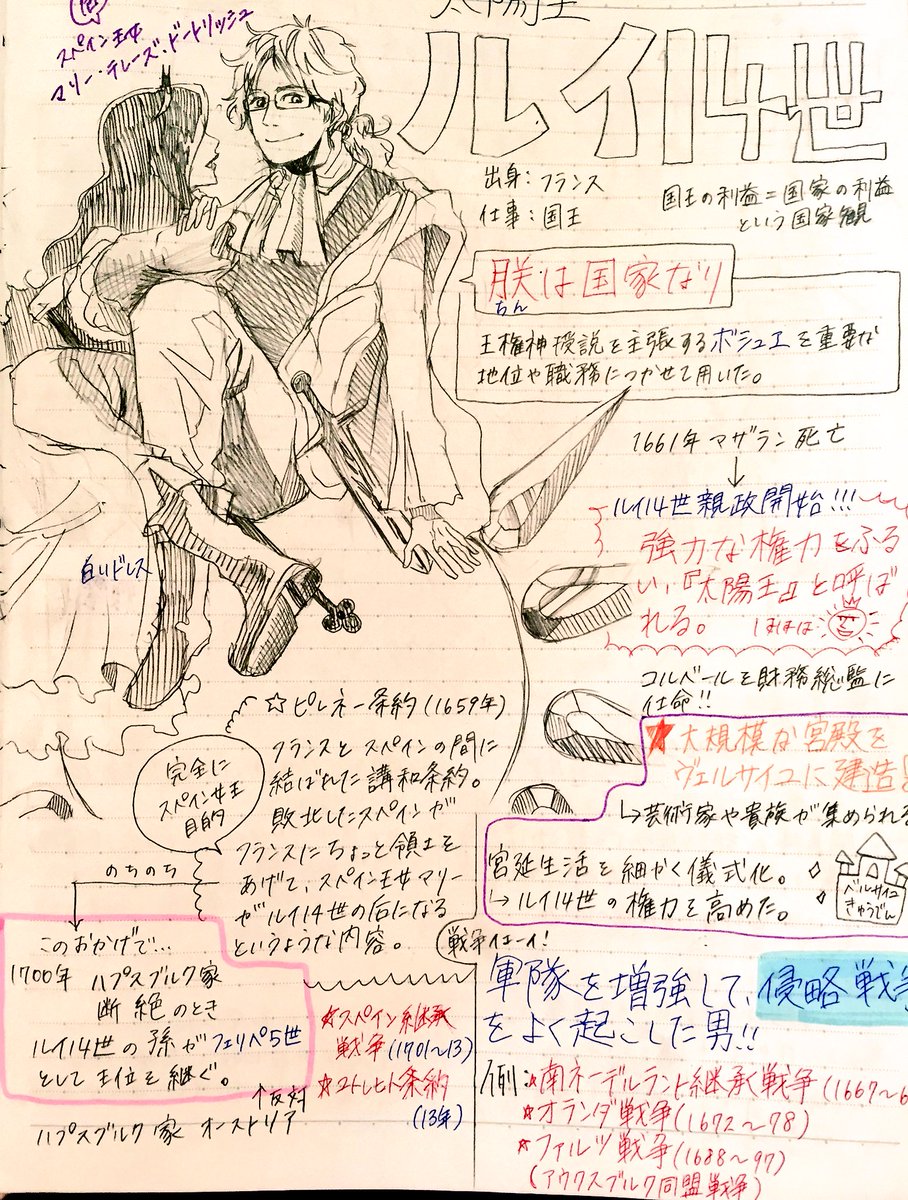 太陽王
ルイ14世
スペイン王女
マリー・テレーズ・ドートリッシュ
出身：フランス
仕事：国王
国王の利益＝国家の利益
という国家観
朕は国家なり
ちん
王権神授説を主張するボシュエを重要な
地位や職務につかせて用いた。
1661年 マザラン 死亡
↓
ルイ14世親政開始!!!
強力な権力をふる
い、『太陽王』と呼ば
れる。
ほほほ
コルベールを財務総監に
任命!!
★大規模な宮殿を
ヴェルサイユに建造!
↳芸術家や貴族が集められる
宮廷生活を細かく儀式化。
↳ルイ14世の権力を高めた。
ベルサイユ
きゅうでん
白いドレス
☆ピレネー条約(1659年)
フランスとスペインの間に
結ばれた講和条約。
敗北したスペインが
フランスにちょっと領土を
あげて、スペイン王女マリー
がルイ14世の后になる
というような内容。
完全に
スペイン女王
目的
のちのち
このおかげで…
1700年 ハプスブルク家
断絶のとき
ルイ14世の孫がフェリペ5世
として王位を継ぐ。
↑反対
ハプスブルク家 オーストリア
★スペイン継承
戦争(1701〜13)
★ユトレヒト条約
(13年)
戦争イエーイ!
軍隊を増強して、侵略戦争
をよく起こした男!!
例：★南ネーデルラント継承戦争(1667〜6
★オランダ戦争(1672〜78)
★ファルツ戦争(1688〜97)
(アウクスブルク同盟戦争)